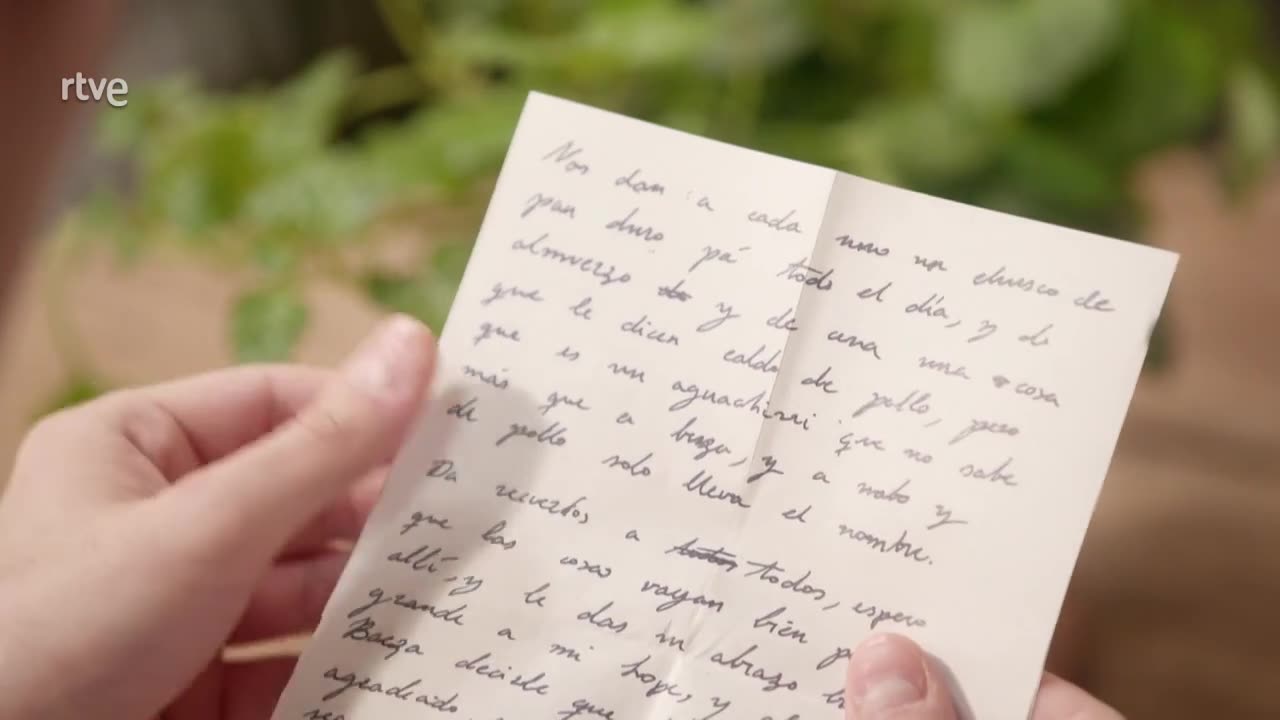 rtve
Nos dan a cada uno un chusco de
pan duro pá todo el día, y de
almuerzo y de cena una cosa
que le dicen caldo de pollo, pero
que es un aguachirri que no sabe
más que a berza, y a nabo y
de pollo solo lleva el nombre.
Da recuerdos a todos, espero
que las cosas vayan bién
allí, y le das un abrazo
grande a mi hope, y
Baeza decirle que
agradecido